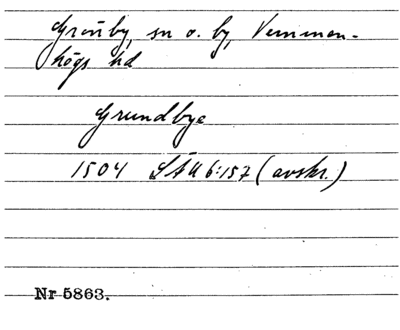 Grönby, sn o. by, Vemmen-
högs hd
Grundbye
1504 LÄU 6:157 (avskr.)
Nr 5863.